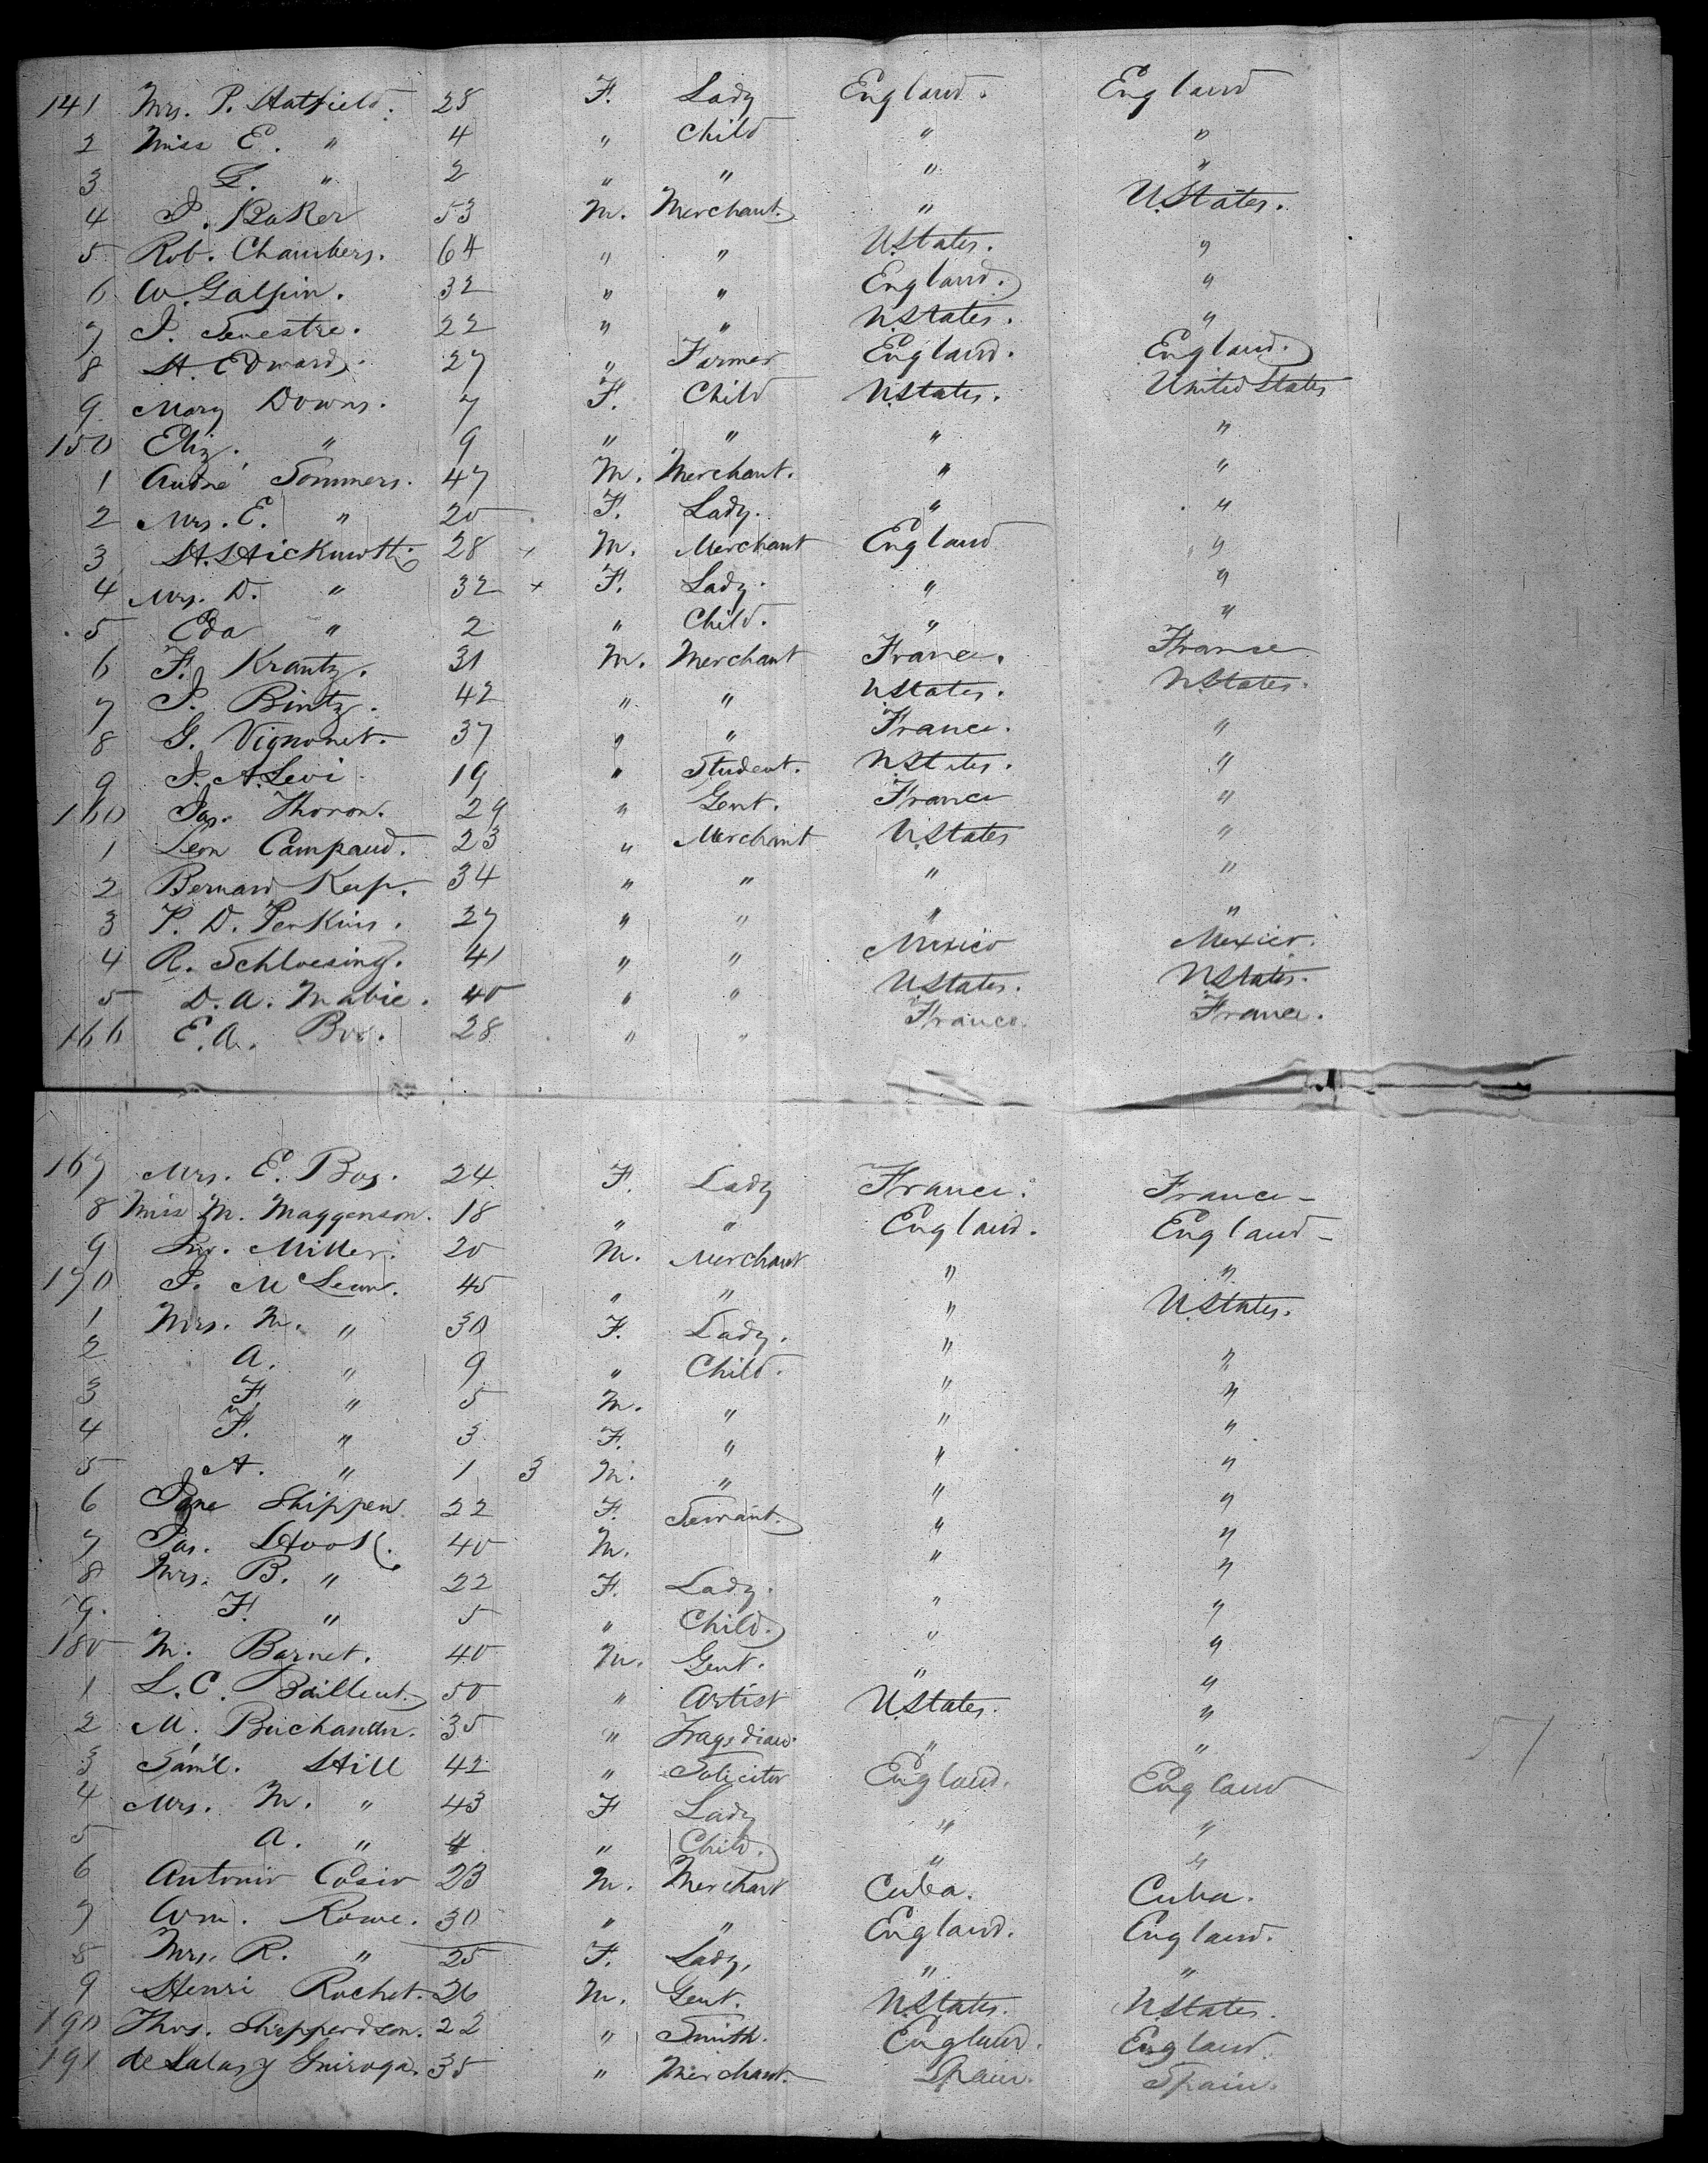 141 Mrs. P. Hatfield. 28 F. Lady England. England
2 Miss E. " 4 " Child " "
3 L. " 2 " " " "
4 J. Baker 53 M. Merchant. " U.States.
5 Rob. Chambers. 64 " " U.States. "
6 W. Galpin. 32 " " England. "
7 J. Senestre. 22 " " U.States. "
8 H. Edwards. 27 " Farmer England. England.
9 Mary Downs. 7 F. Child U.States. United States
150 Eliz. " 9 " " " "
1 André Sommers. 47 M. Merchant. " "
2 Mrs. E. " 20 F. Lady. " "
3 H. 28 M. Merchant England "
4 Mrs. D. " 32 + F. Lady. " "
5 Eda " 2 " Child. " "
6 F. Krantz. 31 M. Merchant France. Franse
7 J. Bintz. 42 " " UStates. UStates.
8 G. Vignonet. 37 " " France. "
9 J. A. Levi 19 " Student. UStates. "
160 Jas. Thoron. 29 " Gent. France "
1 Leon Campaud. 23 " Merchant U.States "
2 Bernard Kap. 34 " " " "
3 P. D. Perkins. 27 " " " "
4 R. Schloesing. 41 " " Mexico Mexico.
5 D. A. Mabie. 40 " " UStates. UStates.
166 E. A. Bos. 28 " " France. France.
167 Mrs. E. Bos. 24 F. Lady France. France-
8 Miss M. Maggenson. 18 " " England. England-
9 Jno. Miller. 20 M. Merchant " "
170 J. McLean. 45 " " " U.States.
1 Mrs. M. " 30 F. Lady. " "
2 A. " 9 " Child. " "
3 F. " 5 M. " " "
4 F. " 3 F. " " "
5 A. " 1 3 M. " " "
6 Jane Shippen 22 F. Servant. " "
7 Jas. Hook. 40 M. " "
8 Mrs. B. " 22 F. Lady. " "
9. F. " 5 " Child. " "
180 M. Barnet. 40 M. Gent. " "
1 L. C. Bailleut. 50 " Artist U.States. "
2 M. Buchanan. 35 " Tragedian. " "
3 Sam'l. Hill 42 " Solicitor England. England
4 Mrs. M. " 43 F Lady " "
5 A. " 4 " Child. " "
6 Antonio Cosio 23 M. Merchant Cuba. Cuba.
7 Wm. Rowe. 30 " " England. England.
8 Mrs. R. " 25 F. Lady, " "
9 Henri Rochet. 26 M. Gent. U.States. U.States.
190 Thos. Shepperdson. 22 " Smith. England. England.
191 de Salas y Guiroga. 35 " Merchant. Spain. Spain.
57